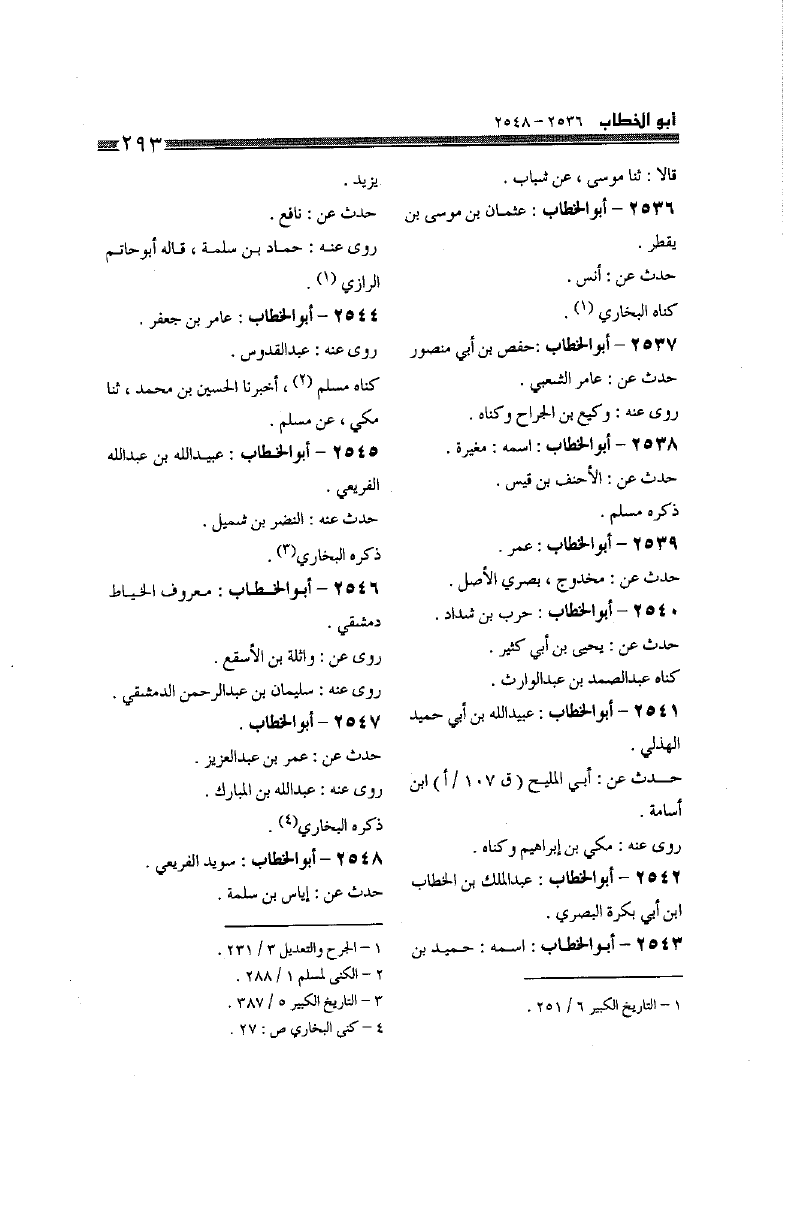 أبو الخطاب ٢٥٣٦ – ٢٥٤٨
٢٩٣
قالا : ثنا موسى ، عن شباب .
٢٥٣٦ – أبوالخطاب : عثمان بن موسى بن
يقطر .
حدث عن : أنس .
كناه البخاري (١) .
٢٥٣٧ – أبوالخطاب :حفص بن أبي منصور
حدث عن : عامر الشعبي .
روى عنه : وكيع بن الجراح وكناه .
٢٥٣٨ – أبوالخطاب : اسمه : مغيرة .
حدث عن : الأحنف بن قيس .
ذكره مسلم .
٢٥٣٩ – أبوالخطاب : عمر .
حدث عن : مخدوج ، بصري الأصل .
٢٥٤٠ – أبوالخطاب : حرب بن شداد .
حدث عن : يحيى بن أبي كثير .
كناه عبدالصمد بن عبدالوارث .
٢٥٤١ – أبوالخطاب : عبيدالله بن أبي حميد
الهذلي .
حدث عن : أبي المليح ( ق ١٠٧ / أ ) ابن
أسامة .
روى عنه : مكي بن إبراهيم وكناه .
٢٥٤٢ – أبوالخطاب : عبدالملك بن الخطاب
ابن أبي بكرة البصري .
٢٥٤٣ – أبوالخطاب : اسمه : حميد بن
١ – التاريخ الكبير ٦ / ٢٥١ .
يزيد .
حدث عن : نافع .
روى عنه : حماد بن سلمة ، قاله أبوحاتم
الرازي (١) .
٢٥٤٤ – أبوالخطاب : عامر بن جعفر .
روى عنه : عبدالقدوس .
كناه مسلم (٢) ، أخبرنا الحسين بن محمد ، ثنا
مكي ، عن مسلم .
٢٥٤٥ – أبوالخطاب : عبيدالله بن عبدالله
الفريعي .
حدث عنه : النضر بن شميل .
ذكره البخاري(٣) .
٢٥٤٦ – أبوالخطاب : معروف الخياط
دمشقي .
روى عن : واثلة بن الأسقع .
روى عنه : سليمان بن عبدالرحمن الدمشقي .
٢٥٤٧ – أبوالخطاب .
حدث عن : عمر بن عبدالعزيز .
روى عنه : عبدالله بن المبارك .
ذكره البخاري(٤) .
٢٥٤٨ – أبوالخطاب : سويد الفريعي .
حدث عن : إياس بن سلمة .
١ – الجرح والتعديل ٣ / ٢٣١ .
٢ – الكنى لمسلم ١ / ٢٨٨ .
٣ – التاريخ الكبير ٥ / ٣٨٧ .
٤ – كنى البخاري ص : ٢٧ .